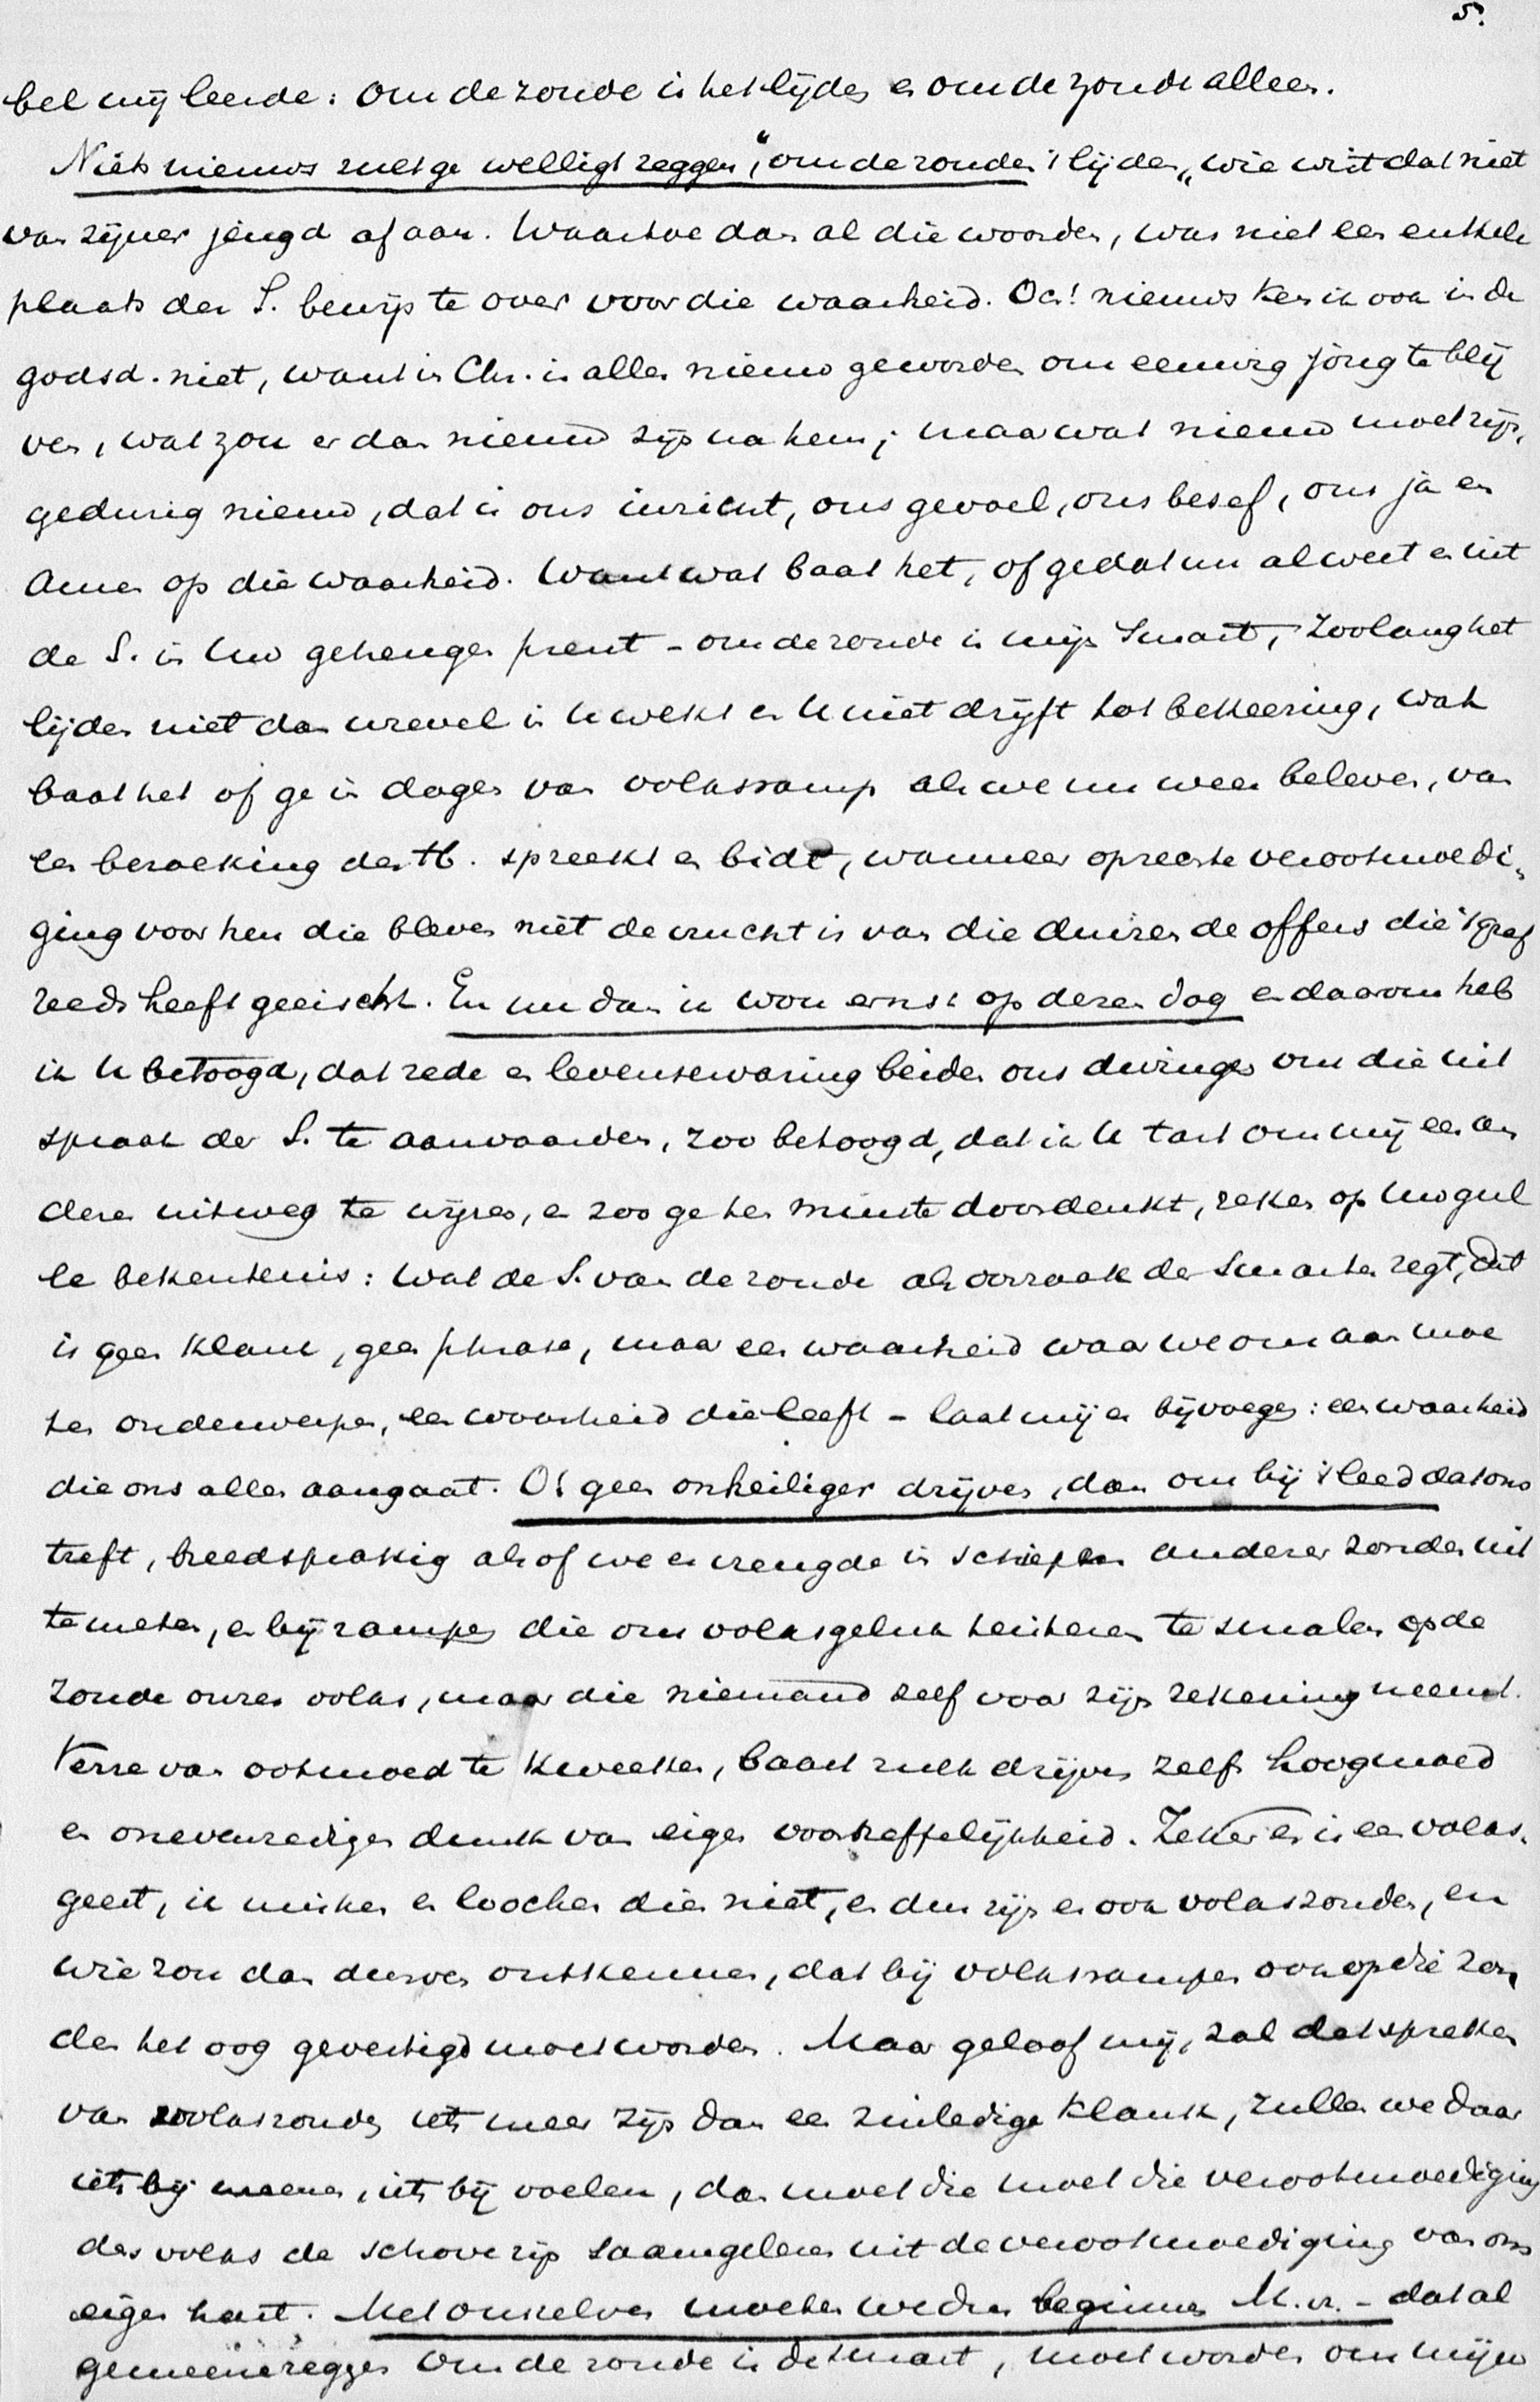 5.
bel mij leerde: om de zonde is het lijden en om de zonde alleen.
Niets nieuws zult ge welligt zeggen, "om de zonde 't lijden" wie wist dat niet
van zijner jeugd af aan. Waartoe dan al die woorden, was niet een enkele
plaats der S. bewijs te over voor die waarheid. Och! nieuws ken ik ook in de
godsd. niet, want in Chr. is alles nieuw geworden om eeuwig jong te blij
ven, wat zou er dan nieuw zijn na hem; maar wat nieuw moet zijn,
gedurig nieuw, dat is ons inzicht, ons gevoel, ons besef, ons ja en
Amen op die waarheid. Want wat baat het, of ge dat nu al weet en uit
de S. in Uw geheugen prent - om de zonde is mijn smart, zoolang het
lijden niet dan wrevel in U wekt en U niet drijft tot bekeering, wat
baat het of ge in dagen van volksramp als we nu weer beleven, van
een bezoeking des H. spreekt en bidt, wanneer opregte verootmoedi-
ging voor hen die bleven niet de vrucht is van die duizende offers die 't graf
reeds heeft geeischt. En nu dan ik wou ernst op dezen dag en daarom heb
ik U betoogd, dat rede en levenservaring beiden ons dwingen om die uit
spraak der S. te aanvaarden, zoo betoogd, dat ik U tart om mij een an
deren uitweg te wijzen, en zoo ge ten minste doordenkt, reken op Uw gul
le bekentenis: Wat de S. van de zonde als oorzaak der smarten zegt, dat
is geen klank, geen phrase, maar een waarheid waar we ons aan moe
ten onderwerpen, een waarheid die leeft - laat mij er bijvoegen: een waarheid
die ons allen aangaat. O! geen onheiliger drijven, dan om bij 't leed dat ons
treft, breedsprakig alsof we er vreugde in schiepen anderer zonden uit
te meten, en bij rampen die ons volksgeluk teisteren te smalen op de
zonde onzes volks, maar die niemand zelf voor zijn rekening neemt.
Verre van ootmoed te kweeken, baart zulk drijven zelfs hoogmoed
en onevenredigen dunk van eigen voortreffelijkheid. Zeker er is een volks-
geest, ik misken en loochen dien niet, en dus zijn er ook volkszonden, en
wie zou dan durven ontkennen, dat bij volksrampen ook op die zon
den het oog gevestigd moet worden. Maar geloof mij, zal dat spreken
van volkszonden iets meer zijn dan een zinledige klank, zullen we daar
iets bij meenen, iets bij voelen, dan moet die moet die verootmoediging
des volks de schoof zijn saamgelezen uit de verootmoediging van ons
eigen hart. Met onszelven moeten we dus beginnen M.vr. - dat al
gemeene zeggen Om de zonde is de smart, moet worden om mijne